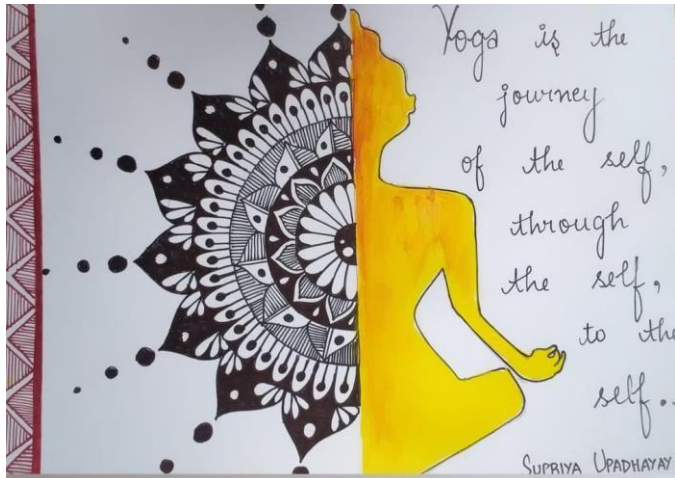 Yoga is the
journey
of the self,
through
the self,
to the
self..
SUPRIYA UPADHAYAY